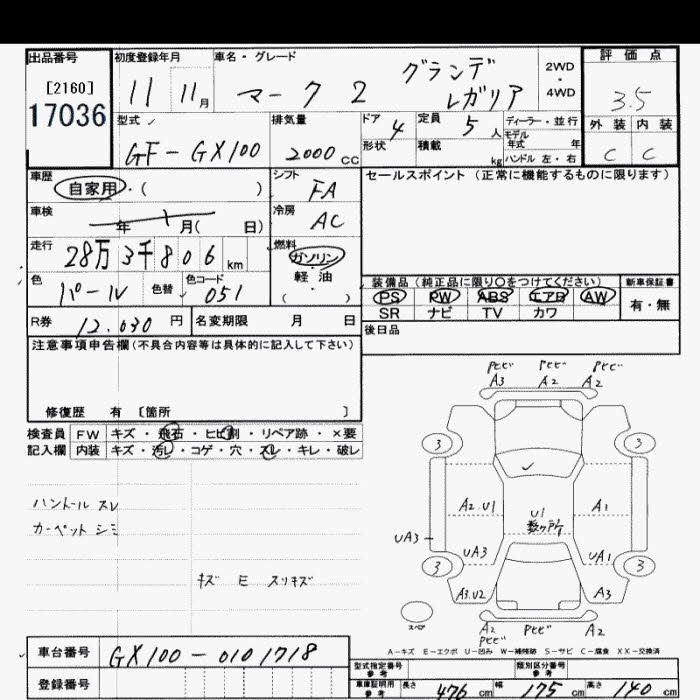 出品番号 初度登録年月 車名・グレード 評価点
[2160] 11 11月 マーク2 グランデ レガリア 2WD・4WD 3.5
17036
型式 排気量 ドア 4 定員 5人 ディーラー・並行 外装 内装
GF-GX100 2000cc 形状 積載 kg モデル年式 年 C C
ハンドル 左・右
車歴 シフト セールスポイント(正常に機能するものに限ります)
自家用・( ) FA
車検 年 月( 日) 冷房 AC
走行 28万3千806km 燃料 ガソリン
軽・油
( )
色 パール 色替 色コード 051
装備品(純正品に限り○をつけてください) 新車保証書
PS PW ABS エアB AW 有・無
SR ナビ TV カワ
R券 12.030円 名変期限 月 日 後日品
注意事項申告欄(不具合内容等は具体的に記入して下さい)
修復歴 有 [箇所 ]
検査員 FW キズ・飛石・ヒビ割・リペア跡・×要
記入欄 内装 キズ・汚レ・コゲ・穴・スレ・キレ・破レ
ハンドル スレ
カーペット シミ
キズ E スリキズ
A3 A2 A2
3 3
A2.U1 U1 A1
数ヶ所
UA3
UA3 UA1
3 3
A3.U2 A3
スペア A2 A2
A-キズ E-エクボ U-凹み W-補修跡 S-サビ C-腐食 XX-交換済
車台番号 GX100-0101718
登録番号
型式指定番号 参考 類別区分番号 参考
車庫証明用 参考 長さ 476cm 幅 175cm 高さ 140cm